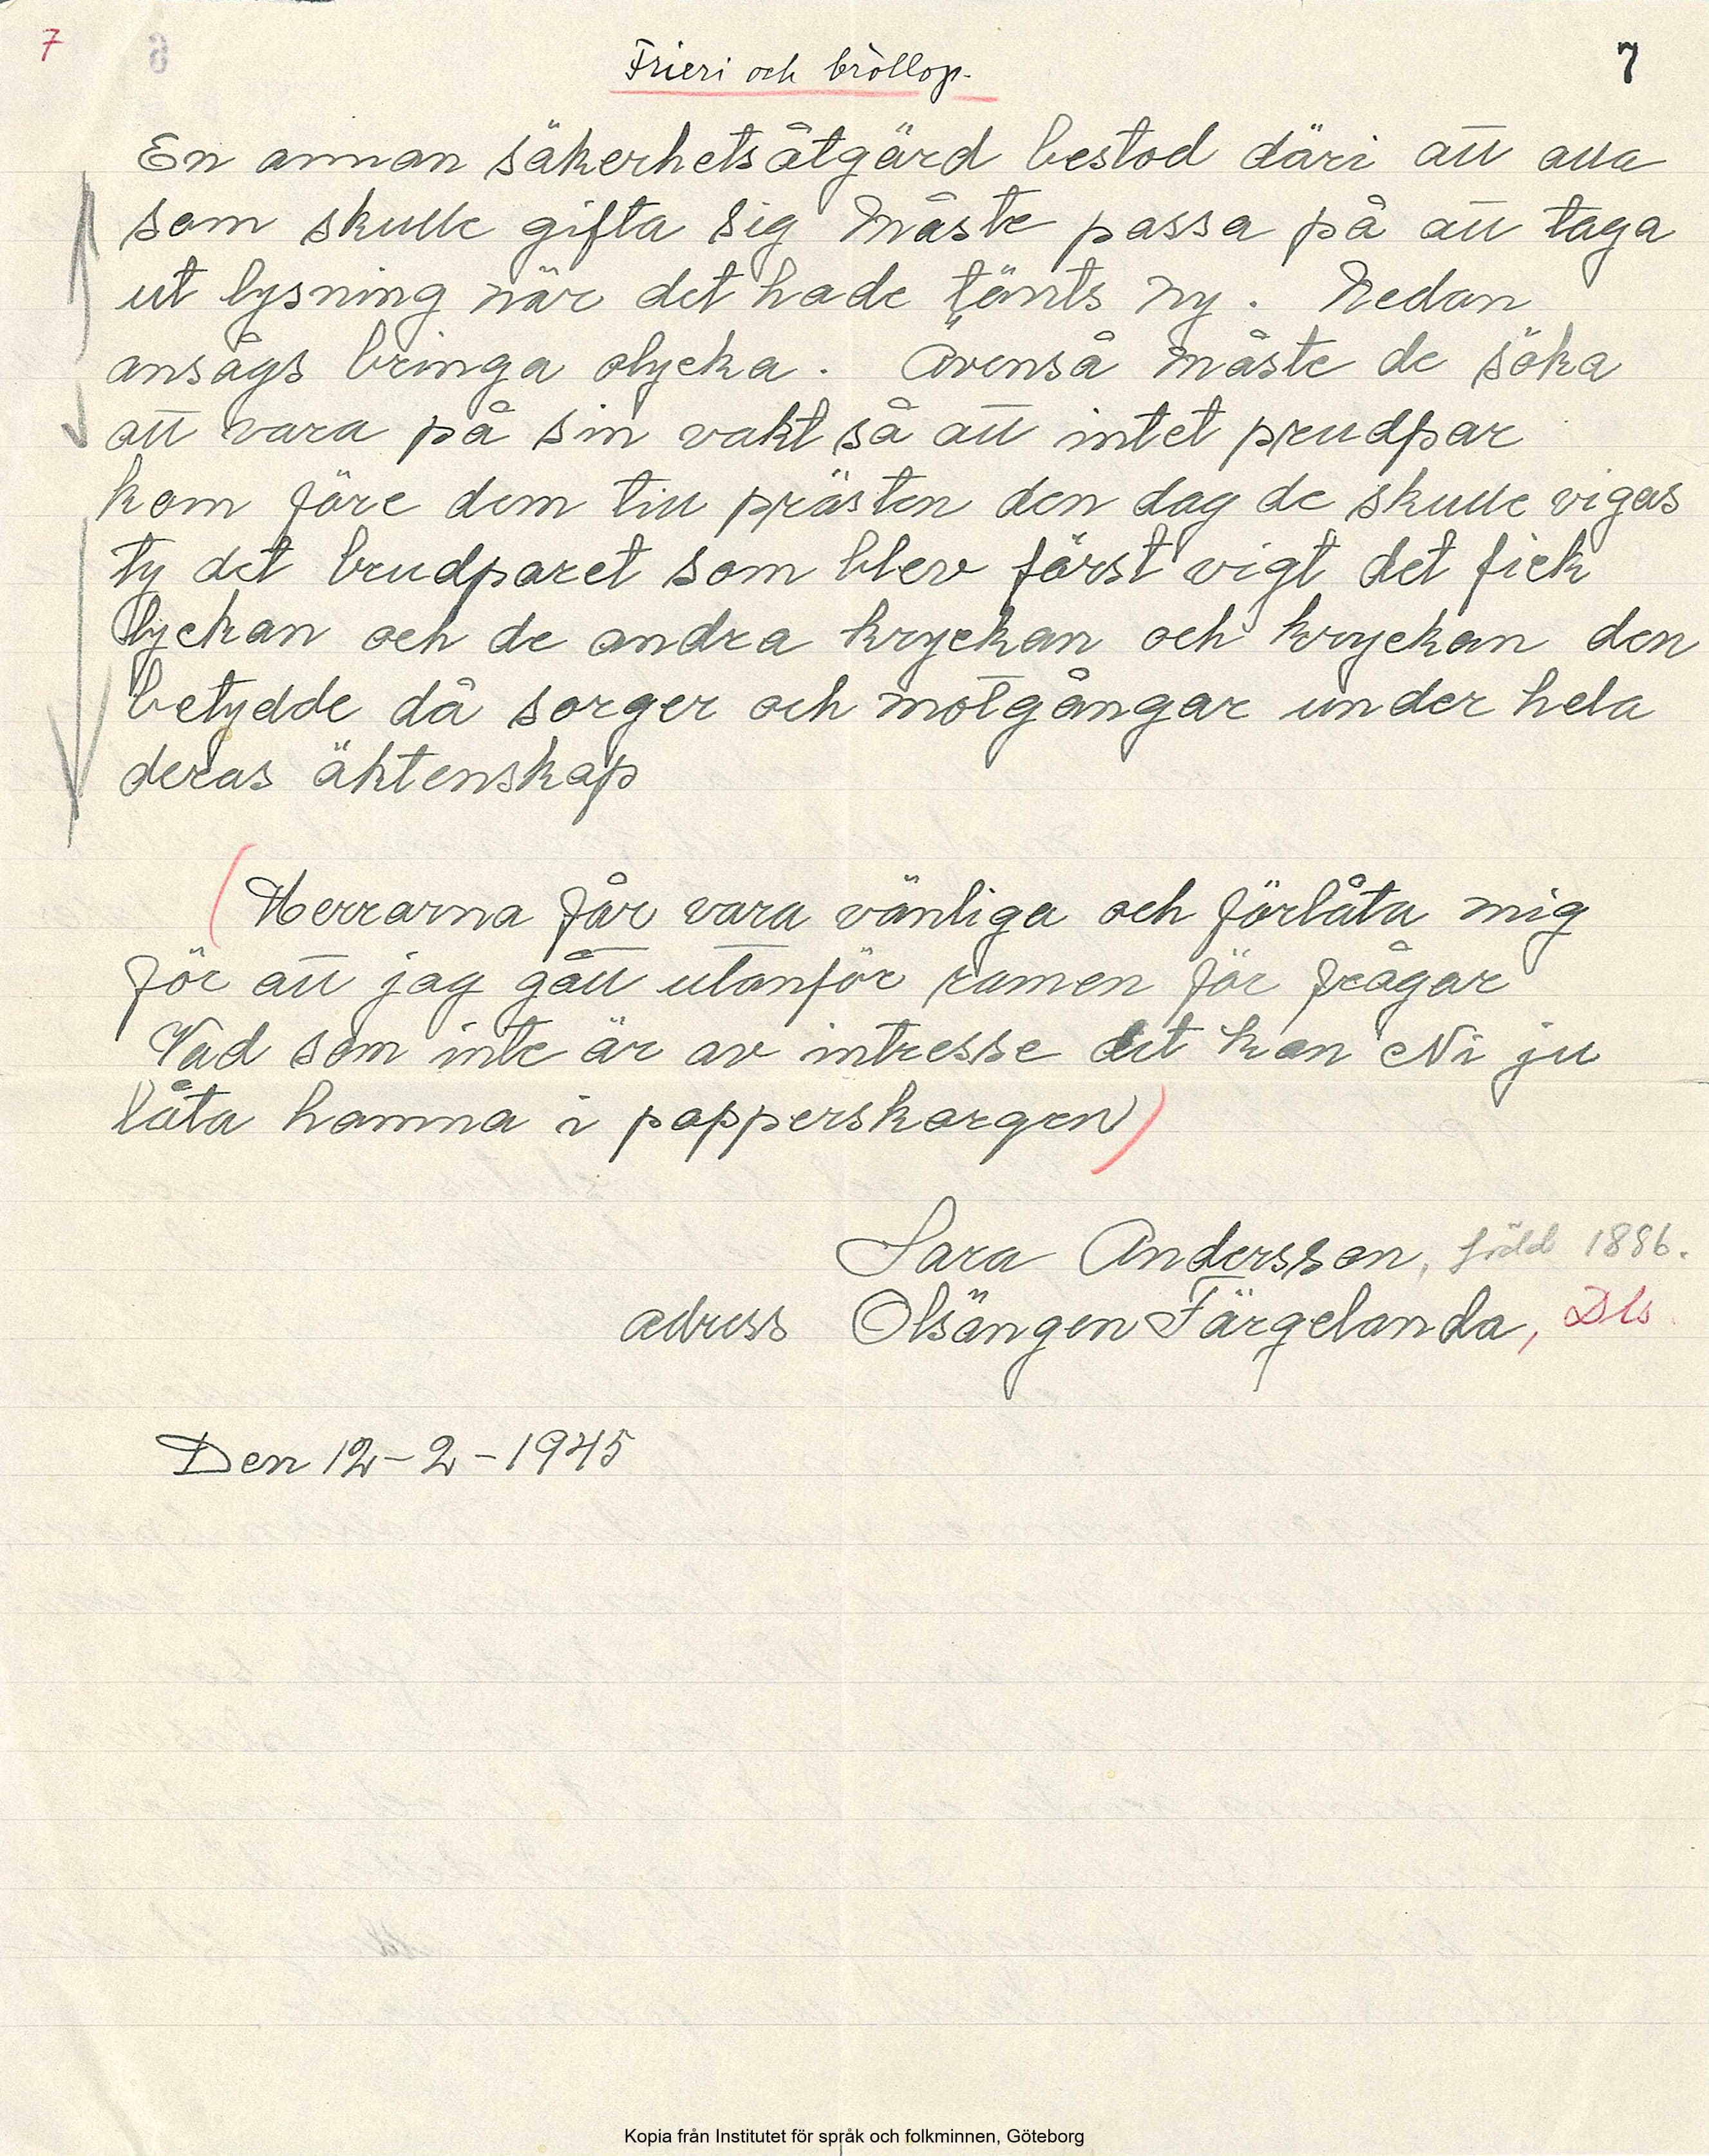 7
7
Frieri och bröllop.
En annan säkerhetsåtgärd bestod däri att alla
som skulle gifta sig måste passa på att taga
ut lysning när det hade tänts ny. Nedan
ansågs bringa olycka. Ävenså måste de söka
att vara på sin vakt så att intet prudpar
kom före dem till prästen den dag de skulle vigas
ty det brudparet som blev först vigt det fick
lyckan och de andra kryckan och kryckan den
betydde då sorger och motgångar under hela
deras äktenskap
(Herrarna får vara vänliga och förlåta mig
för att jag gått utanför ramen för frågar
Vad som inte är av intresse det kan Ni ju
låta hamna i papperskorgen)
Sara Andersson, född 1886.
adress Olsängen Färgelanda, Dls
Den 12-2-1945
Kopia från Institutet för språk och folkminnen, Göteborg